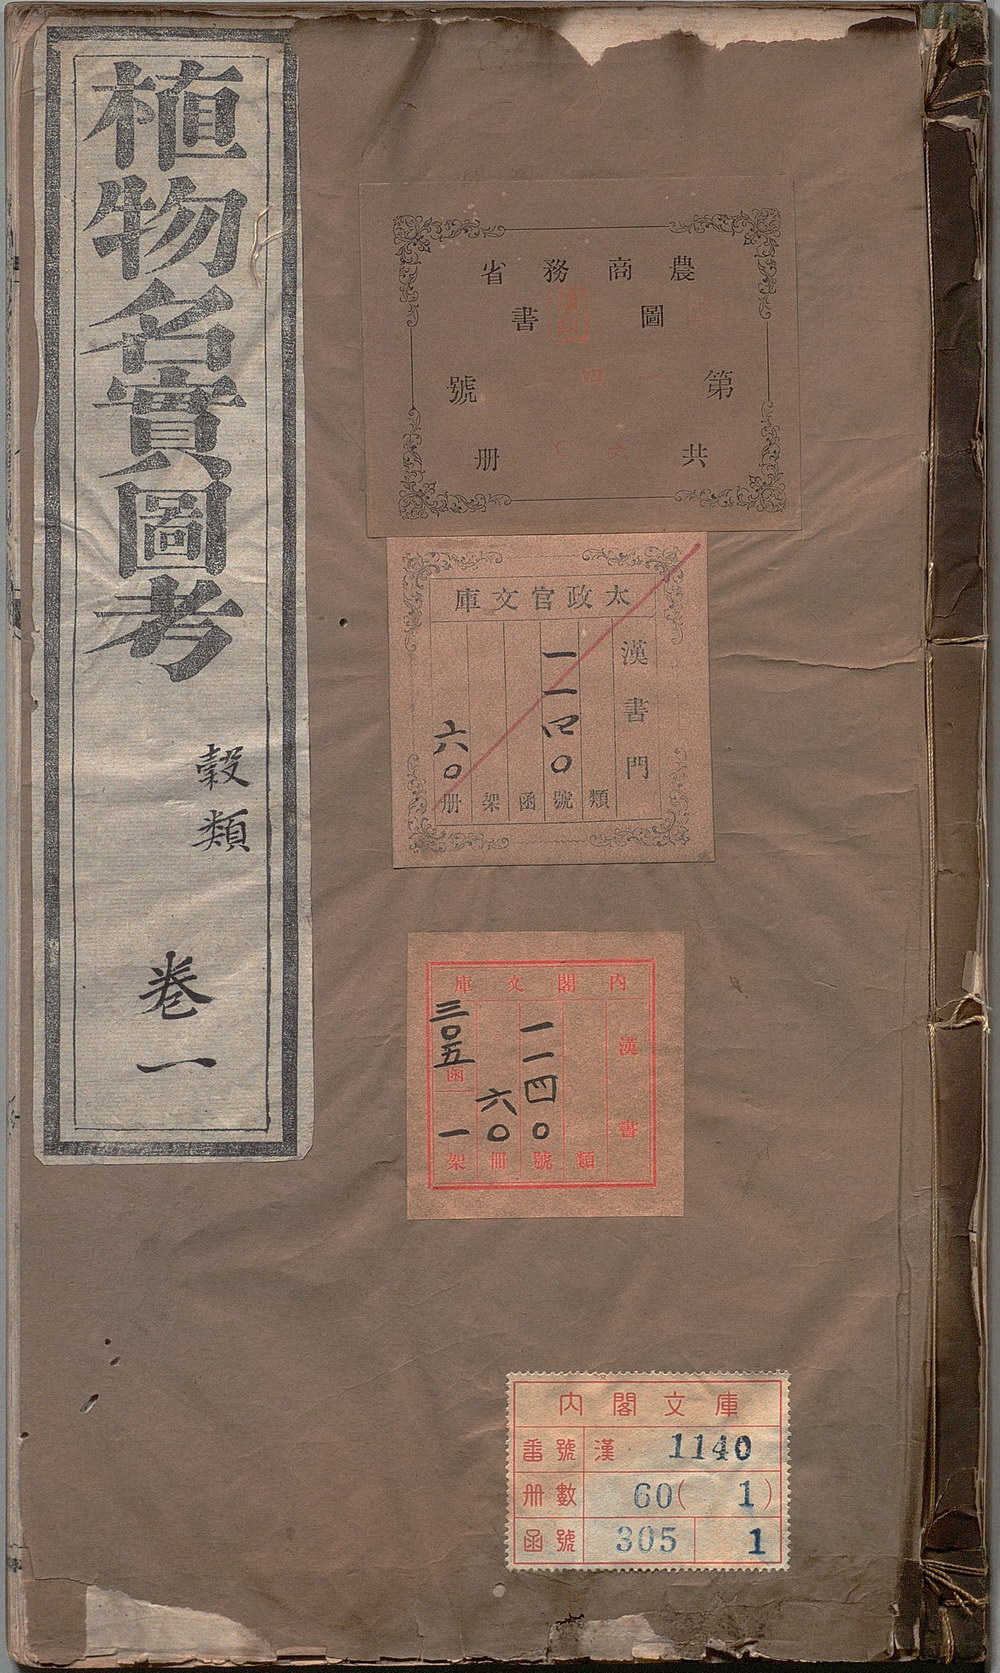 植物名實圖考
穀類
卷一
農商務省
圖書
第 號
四
共 册
六〇
太政官文庫
漢書門
類
一一四〇
號
函
架
六〇
册
內閣文庫
漢書
類
一一四〇
號
六〇
冊
三〇五
函
一
架
內閣文庫
番號 漢 1140
册數 60(1)
函號 305 1